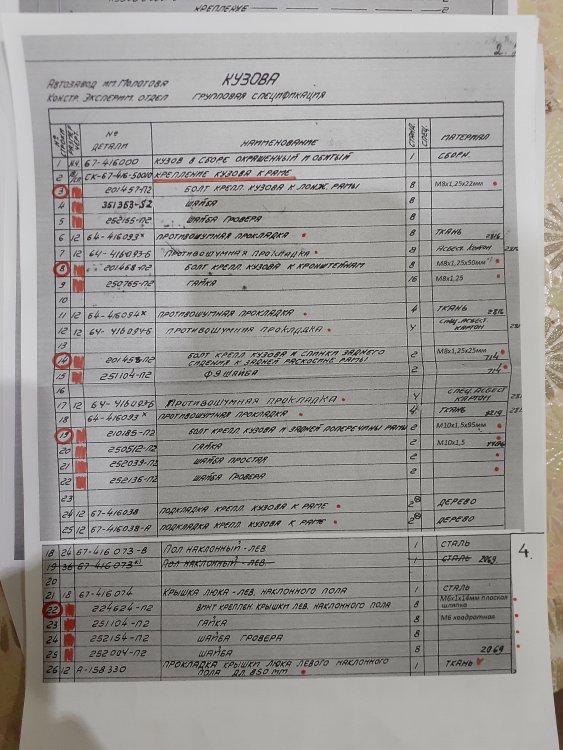 КРЕПЛЕНИЕ
2.
Автозавод им. Молотова КУЗОВА
Констр. Эксперим. отдел ГРУППОВАЯ СПЕЦИФИКАЦИЯ
№ СТРОКИ № ДЕТАЛИ НАИМЕНОВАНИЕ СПЕЦ. МАТЕРИАЛ
1 67-416000 КУЗОВ В СБОРЕ ОКРАШЕННЫЙ И ОБИТЫЙ 1 СБОРН.
2 СК-67-416-50010 КРЕПЛЕНИЕ КУЗОВА К РАМЕ
3 201457-П2 БОЛТ КРЕПЛ КУЗОВА К ЛОНЖ. РАМЫ 8 М8х1,25х22мм
4 351363-S2 ШАЙБА 8
5 252155-П2 ШАЙБА ГРОВЕРА 8
6 12 64-416093 х ПРОТИВОШУМНАЯ ПРОКЛАДКА 8 ТКАНЬ 2816
7 12 64-416093-Б ПРОТИВОШУМНАЯ ПРОКЛАДКА 8 АСБЕСТ. КАРТОН
8 201468-П2 БОЛТ КРЕПЛ КУЗОВА К КРОНШТЕЙНАМ 8 М8х1,25х50мм
9 250765-П2 ГАЙКА 16 М8х1,25
10
11 12 64-416094 х ПРОТИВОШУМНАЯ ПРОКЛАДКА 4 ТКАНЬ 2816
12 12 64-416094-Б ПРОТИВОШУМНАЯ ПРОКЛАДКА 4 СПЕЦ. АСБЕСТ КАРТОН
13
14 201458-П2 БОЛТ КРЕПЛ КУЗОВА И СПИНКИ ЗАДНЕГО СИДЕНИЯ К ЗАДНЕЙ РАСКОСИНЕ РАМЫ 2 М8х1,25х25мм 714
15 251104-П2 ШАЙБА 2 714
16
17 12 64-416093-Б ПРОТИВОШУМНАЯ ПРОКЛАДКА 4 СПЕЦ. АСБЕСТ КАРТОН
18 64-416093 х ПРОТИВОШУМНАЯ ПРОКЛАДКА 4 ТКАНЬ
19 210185-П2 БОЛТ КРЕПЛ КУЗОВА И ЗАДНЕЙ ПОПЕРЕЧИНЫ РАМЫ 2 М10х1,5х95мм
20 250512-П2 ГАЙКА 2 М10х1,5
21 252039-П2 ШАЙБА ПРОСТАЯ 2
22 252136-П2 ШАЙБА ГРОВЕРА 2
23
24 12 67-416038 ПОДКЛАДКА КРЕПЛ КУЗОВА К РАМЕ 2 ДЕРЕВО
25 12 67-416038-А ПОДКЛАДКА КРЕПЛ КУЗОВА К РАМЕ 2 ДЕРЕВО
18 24 67-416073-В ПОЛ НАКЛОННЫЙ-ЛЕВ. 1 СТАЛЬ 4.
19 36 67-416073 ПОЛ НАКЛОННЫЙ-ЛЕВ. 1 СТАЛЬ 2069
20
21 18 67-416074 КРЫШКА ЛЮКА-ЛЕВ. НАКЛОННОГО ПОЛА 1 СТАЛЬ
22 224624-П2 ВИНТ КРЕПЛЕН КРЫШКИ ЛЕВ. НАКЛОННОГО ПОЛА 8 М6х1х14мм плоская шляпка
23 251104-П2 ГАЙКА 8 М6 квадратная
24 252154-П2 ШАЙБА ГРОВЕРА 8
25 252004-П2 ШАЙБА 8 2069
26 12 А-158330 ПРОКЛАДКА КРЫШКИ ЛЮКА ЛЕВОГО НАКЛОННОГО ПОЛА ДЛ. 850 ММ 1 ТКАНЬ